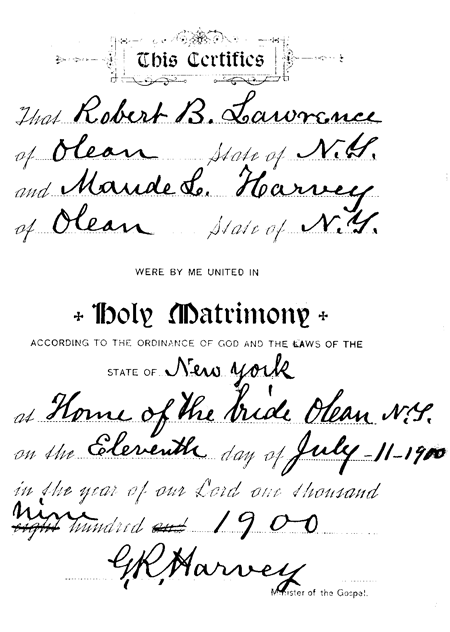 This Certifies
That Robert B. Lawrence
of Olean State of N.Y.
and Maude L. Harvey
of Olean State of N.Y.
WERE BY ME UNITED IN
Holy Matrimony
ACCORDING TO THE ORDINANCE OF GOD AND THE LAWS OF THE
STATE OF New York
at Home of the bride Olean N.Y.
on the Eleventh day of July -11-1900
in the year of our Lord one thousand
nine
eight hundred and 1900
G.R. Harvey
Minister of the Gospel.